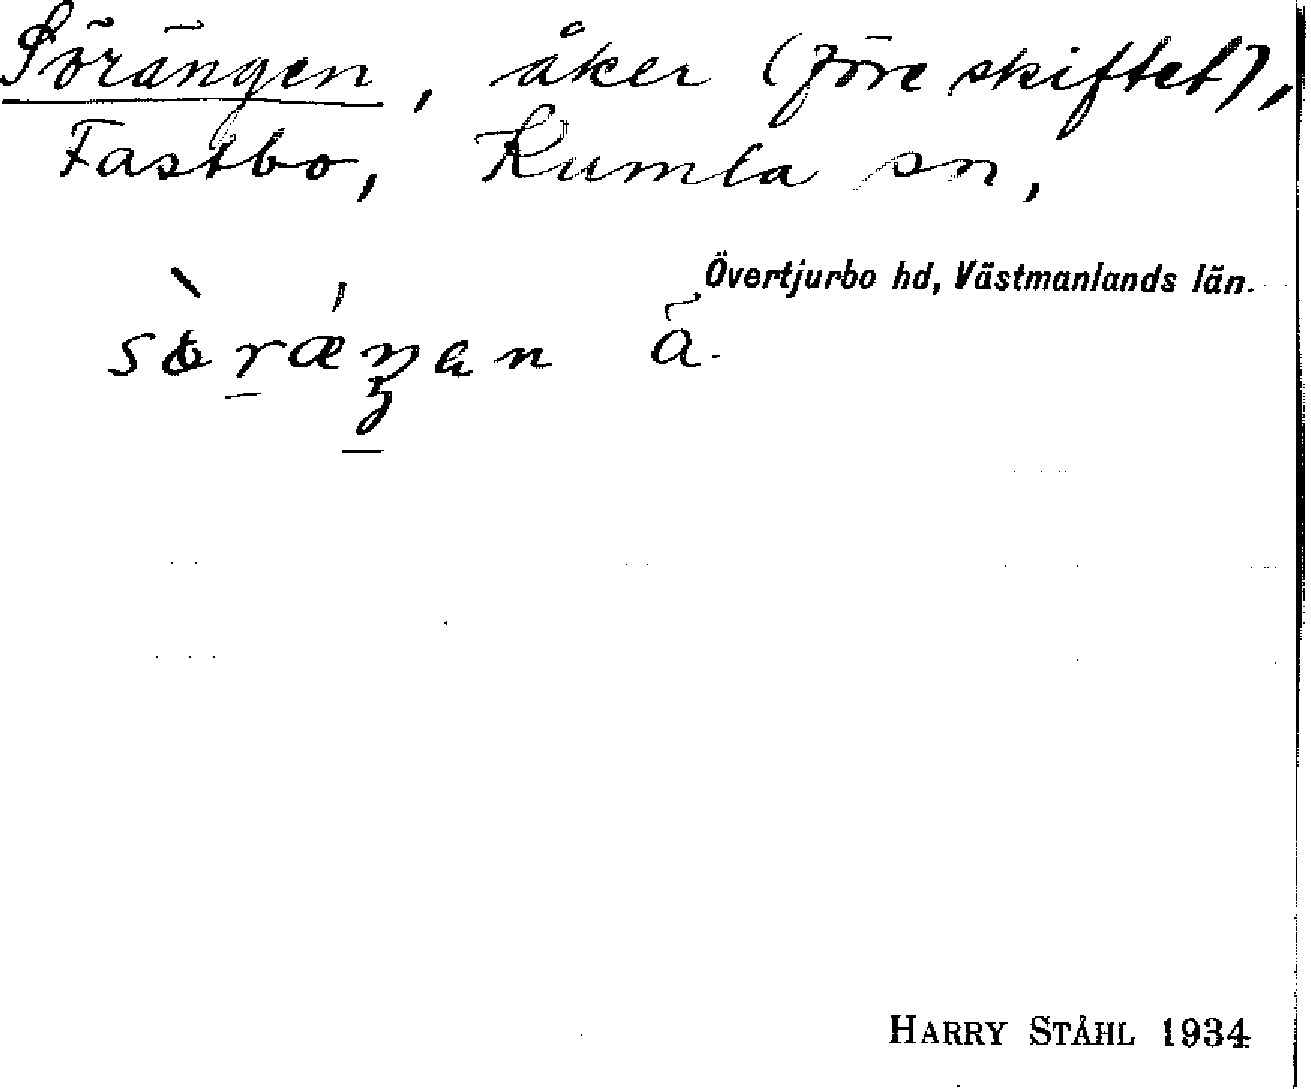 Sörängen, åker (före skiftet),
Fastbo, Kumla sn,
Övertjurbo hd, Västmanlands län.
ã.
HARRY STÅHL 1934